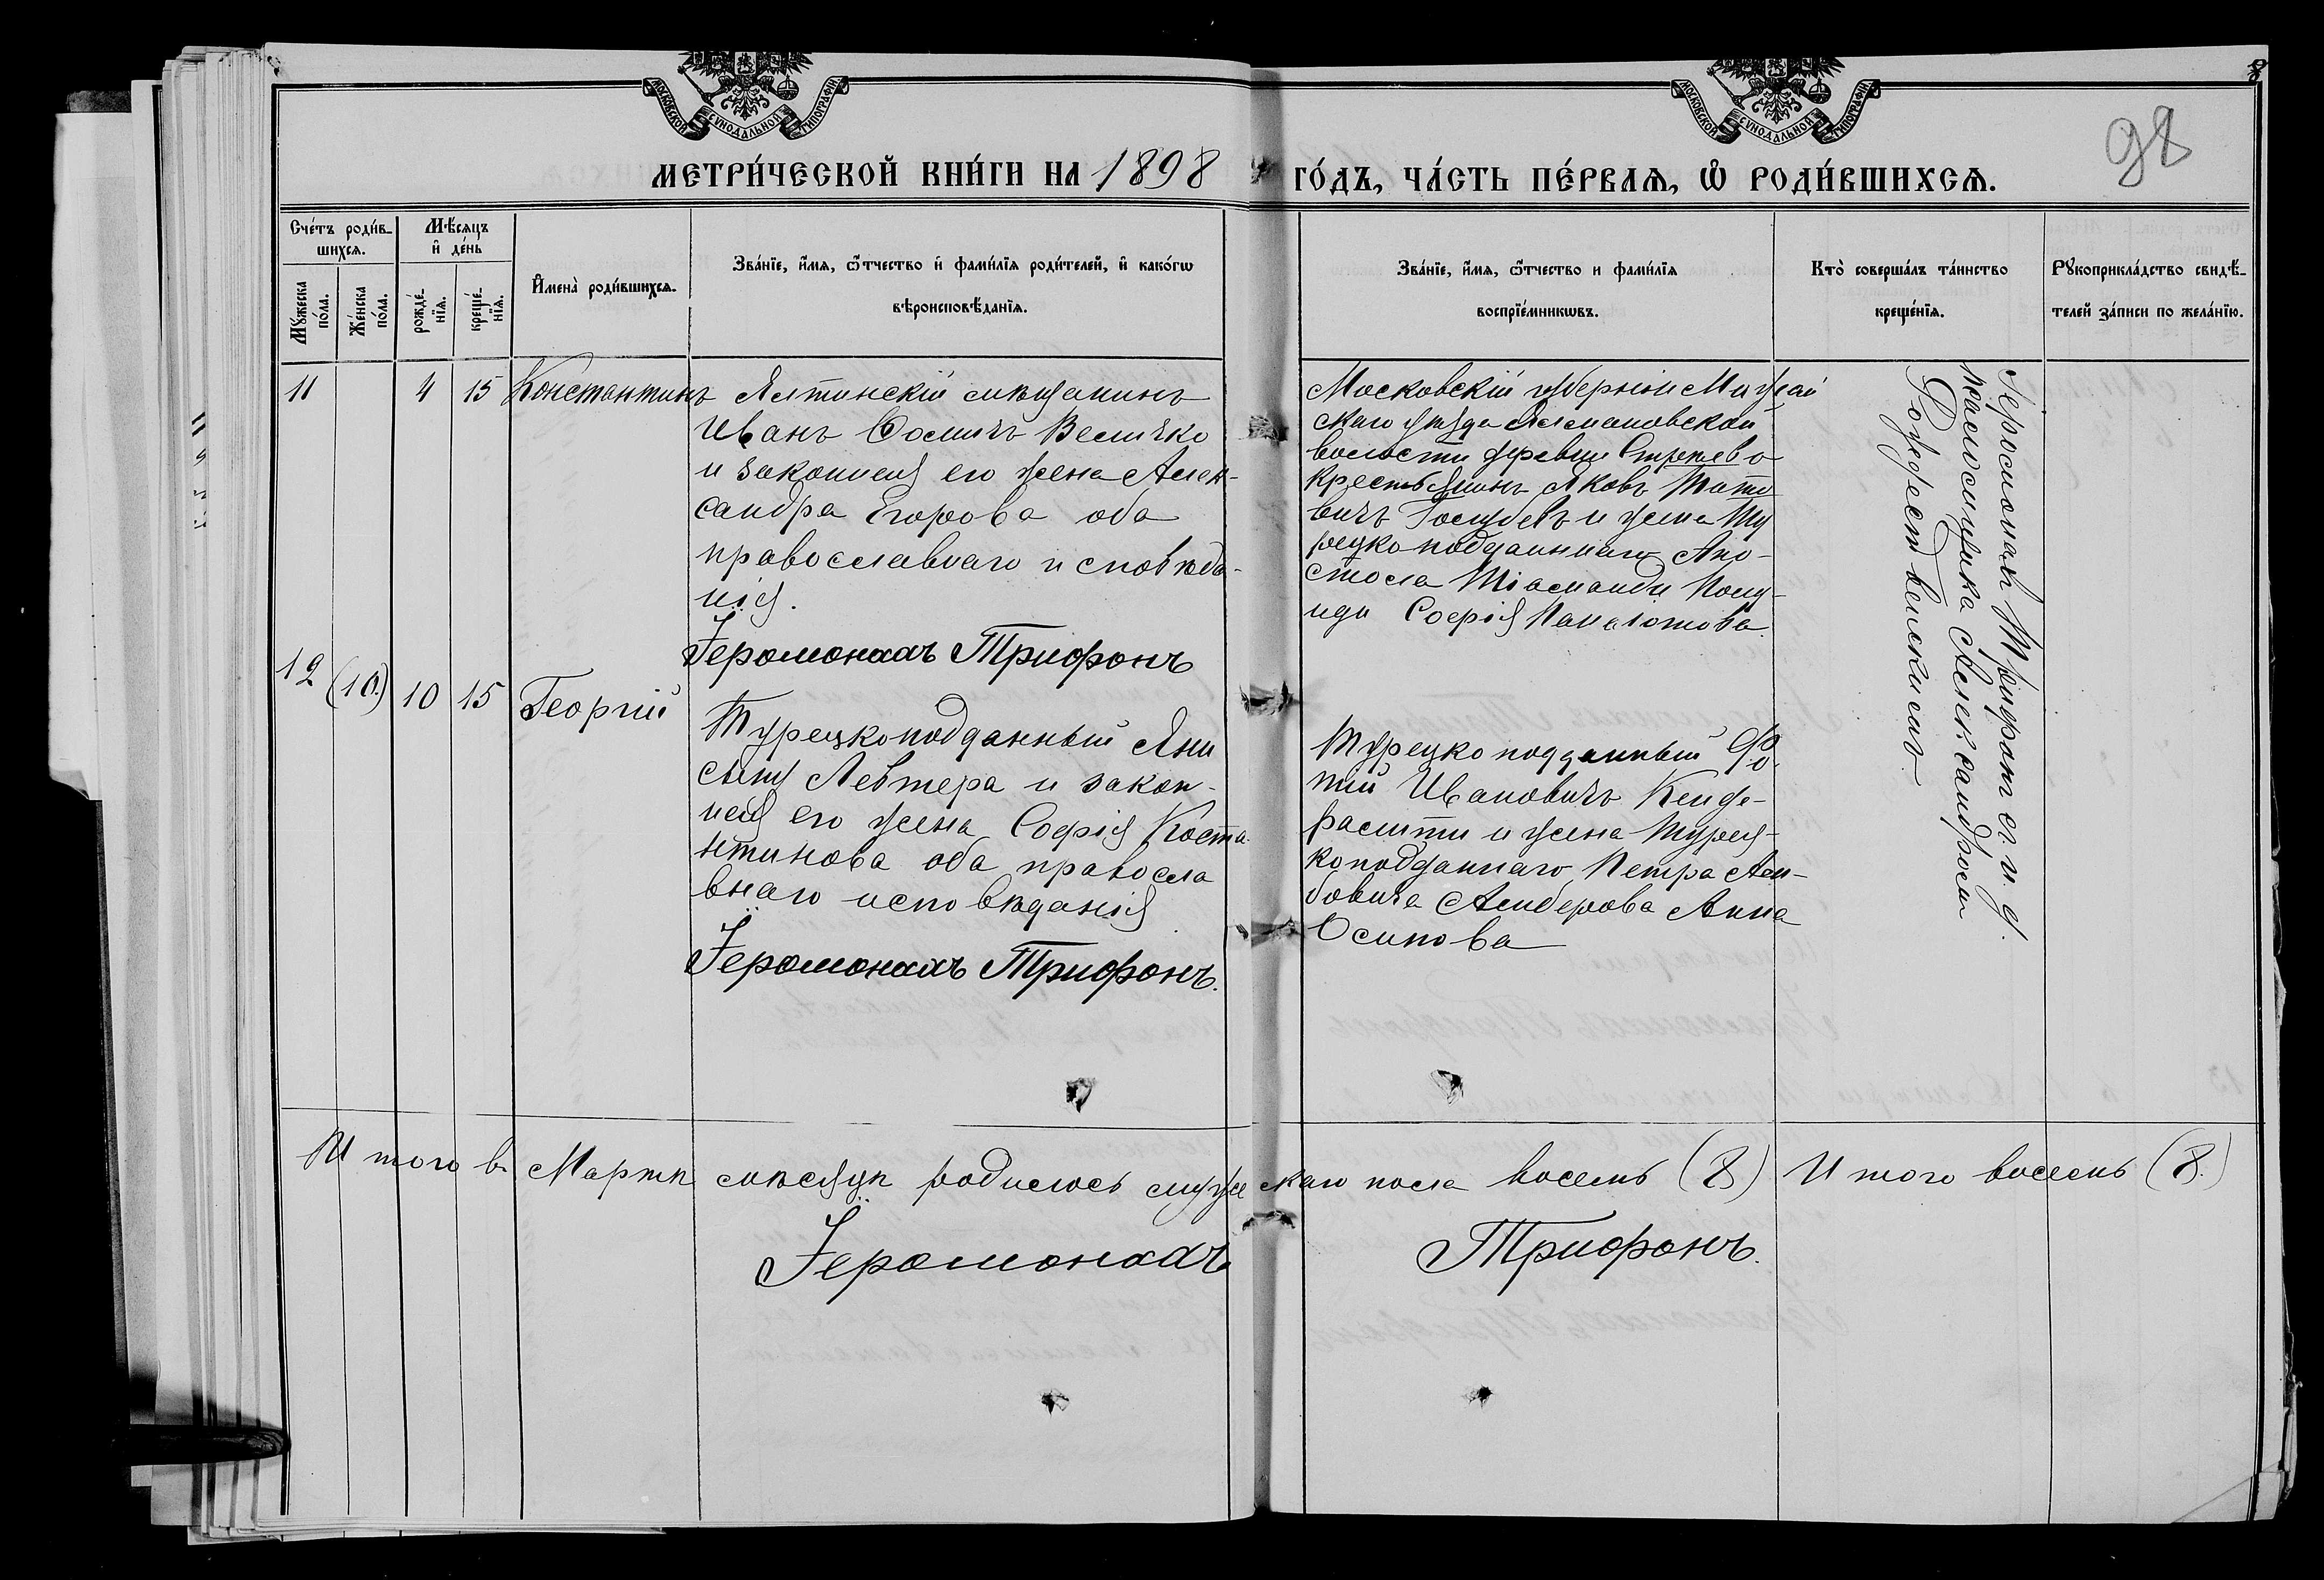 МОСКОВСКОЙ СѴНОДАЛЬНОЙ ТИПОГРАФІИ
МОСКОВСКОЙ СѴНОДАЛЬНОЙ ТИПОГРАФІИ
98
МЕТРИ́ЧЕСКОЙ КНИ́ГИ НА 1898 ГО́ДЪ, ЧА́СТЬ ПЕ́РВАѦ, Ѡ РОДИ́ВШИХСѦ.
Сче́тъ роди́в-
шихсѧ.
Мꙋ́жеска
по́ла.
Же́нска
по́ла.
Мѣ́сѧцъ
и҆ де́нь
рожде́-
нїѧ.
креще́-
нїѧ.
И҆мена̀ роди́вшихсѧ.
Зва́нїе, и҆́мѧ, ѻ҆́тчество и҆ фами́лїѧ роди́телей, и҆ како́гѡ
вѣроисповѣ́данїѧ.
Зва́нїе, и҆́мѧ, ѻ҆́тчество и фами́лїѧ
воспрїе́мникѡвъ.
Кто̀ соверша́лъ та́инство
креще́нїѧ.
Рꙋкоприкла́дство свидѣ́-
телей за́писи по жела́нїю.
11
4
15
Константинъ
Ялтинскій мѣщанинъ
Иванъ Ѳомичъ Величко
и законная его жена Алек-
сандра Егорова оба
православнаго исповѣда-
нія.
Іеромонахъ Трифонъ
Московскій губерніи Можай
скаго уѣзда
волости деревни
крестьянинъ Яковъ Тито
вичъ Голубевъ и жена Ту
рецкоподданнаго Апо-
стола
Софія Панаіотова.
Іеромонахъ Трифонъ с. и. д.
псаломщика Александромъ
Рождественскимъ.
12
(10.)
10
15
Георгій
Турецкоподданный Яни
сынъ Левтера и закон-
ная его жена Софія Конста-
нтинова оба правосла
внаго исповѣданія
Іеромонахъ Трифонъ.
Турецкоподданный Фо-
тій Ивановичъ
и жена Турец-
коподданнаго Петра
Анна
Осипова
Итого въ Мартѣ мѣсяцѣ родилось мужескаго пола восемь (8) Итого восемь (8.)
Іеромонахъ Трифонъ.